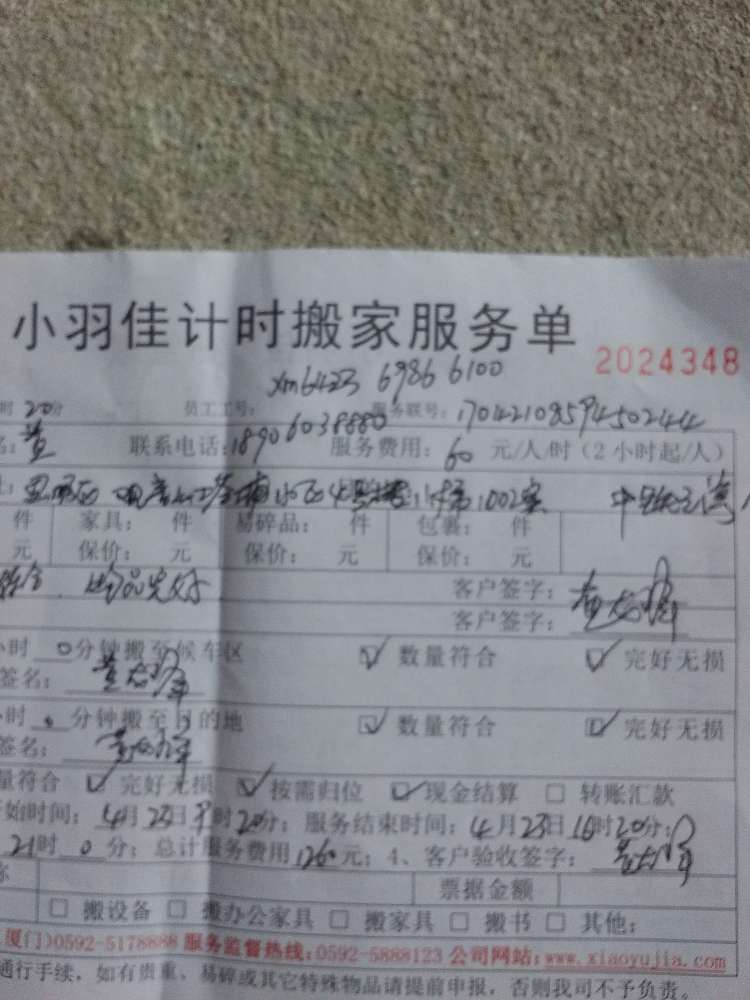 小羽佳计时搬家服务单
2024348
xm6423 6986 6100
时20分 员工工号: 服务联号:17042108594502444
名:黄 联系电话:18906038880 服务费用:60元/人/时(2小时起/人)
1002室
件 家具: 件 易碎品: 件 包裹: 件
元 保价: 元 保价: 元 保价: 元
物品完好 客户签字:
客户签字:
小时0分钟搬至候车区 数量符合 完好无损
签名:
小时0分钟搬至目的地 数量符合 完好无损
签名:
量符合 完好无损 按需归位 现金结算 转账汇款
开始时间:4月23日9时20分;服务结束时间:4月23日16时20分;
21时0分;总计服务费用1260元;4、客户验收签字:
称 票据金额
搬设备 搬办公家具 搬家具 搬书 其他:
厦门)0592-5178888 服务监督热线:0592-5888123 公司网站:www.xiaoyujia.com
通行手续,如有贵重、易碎或其它特殊物品请提前申报,否则我司不予负责。